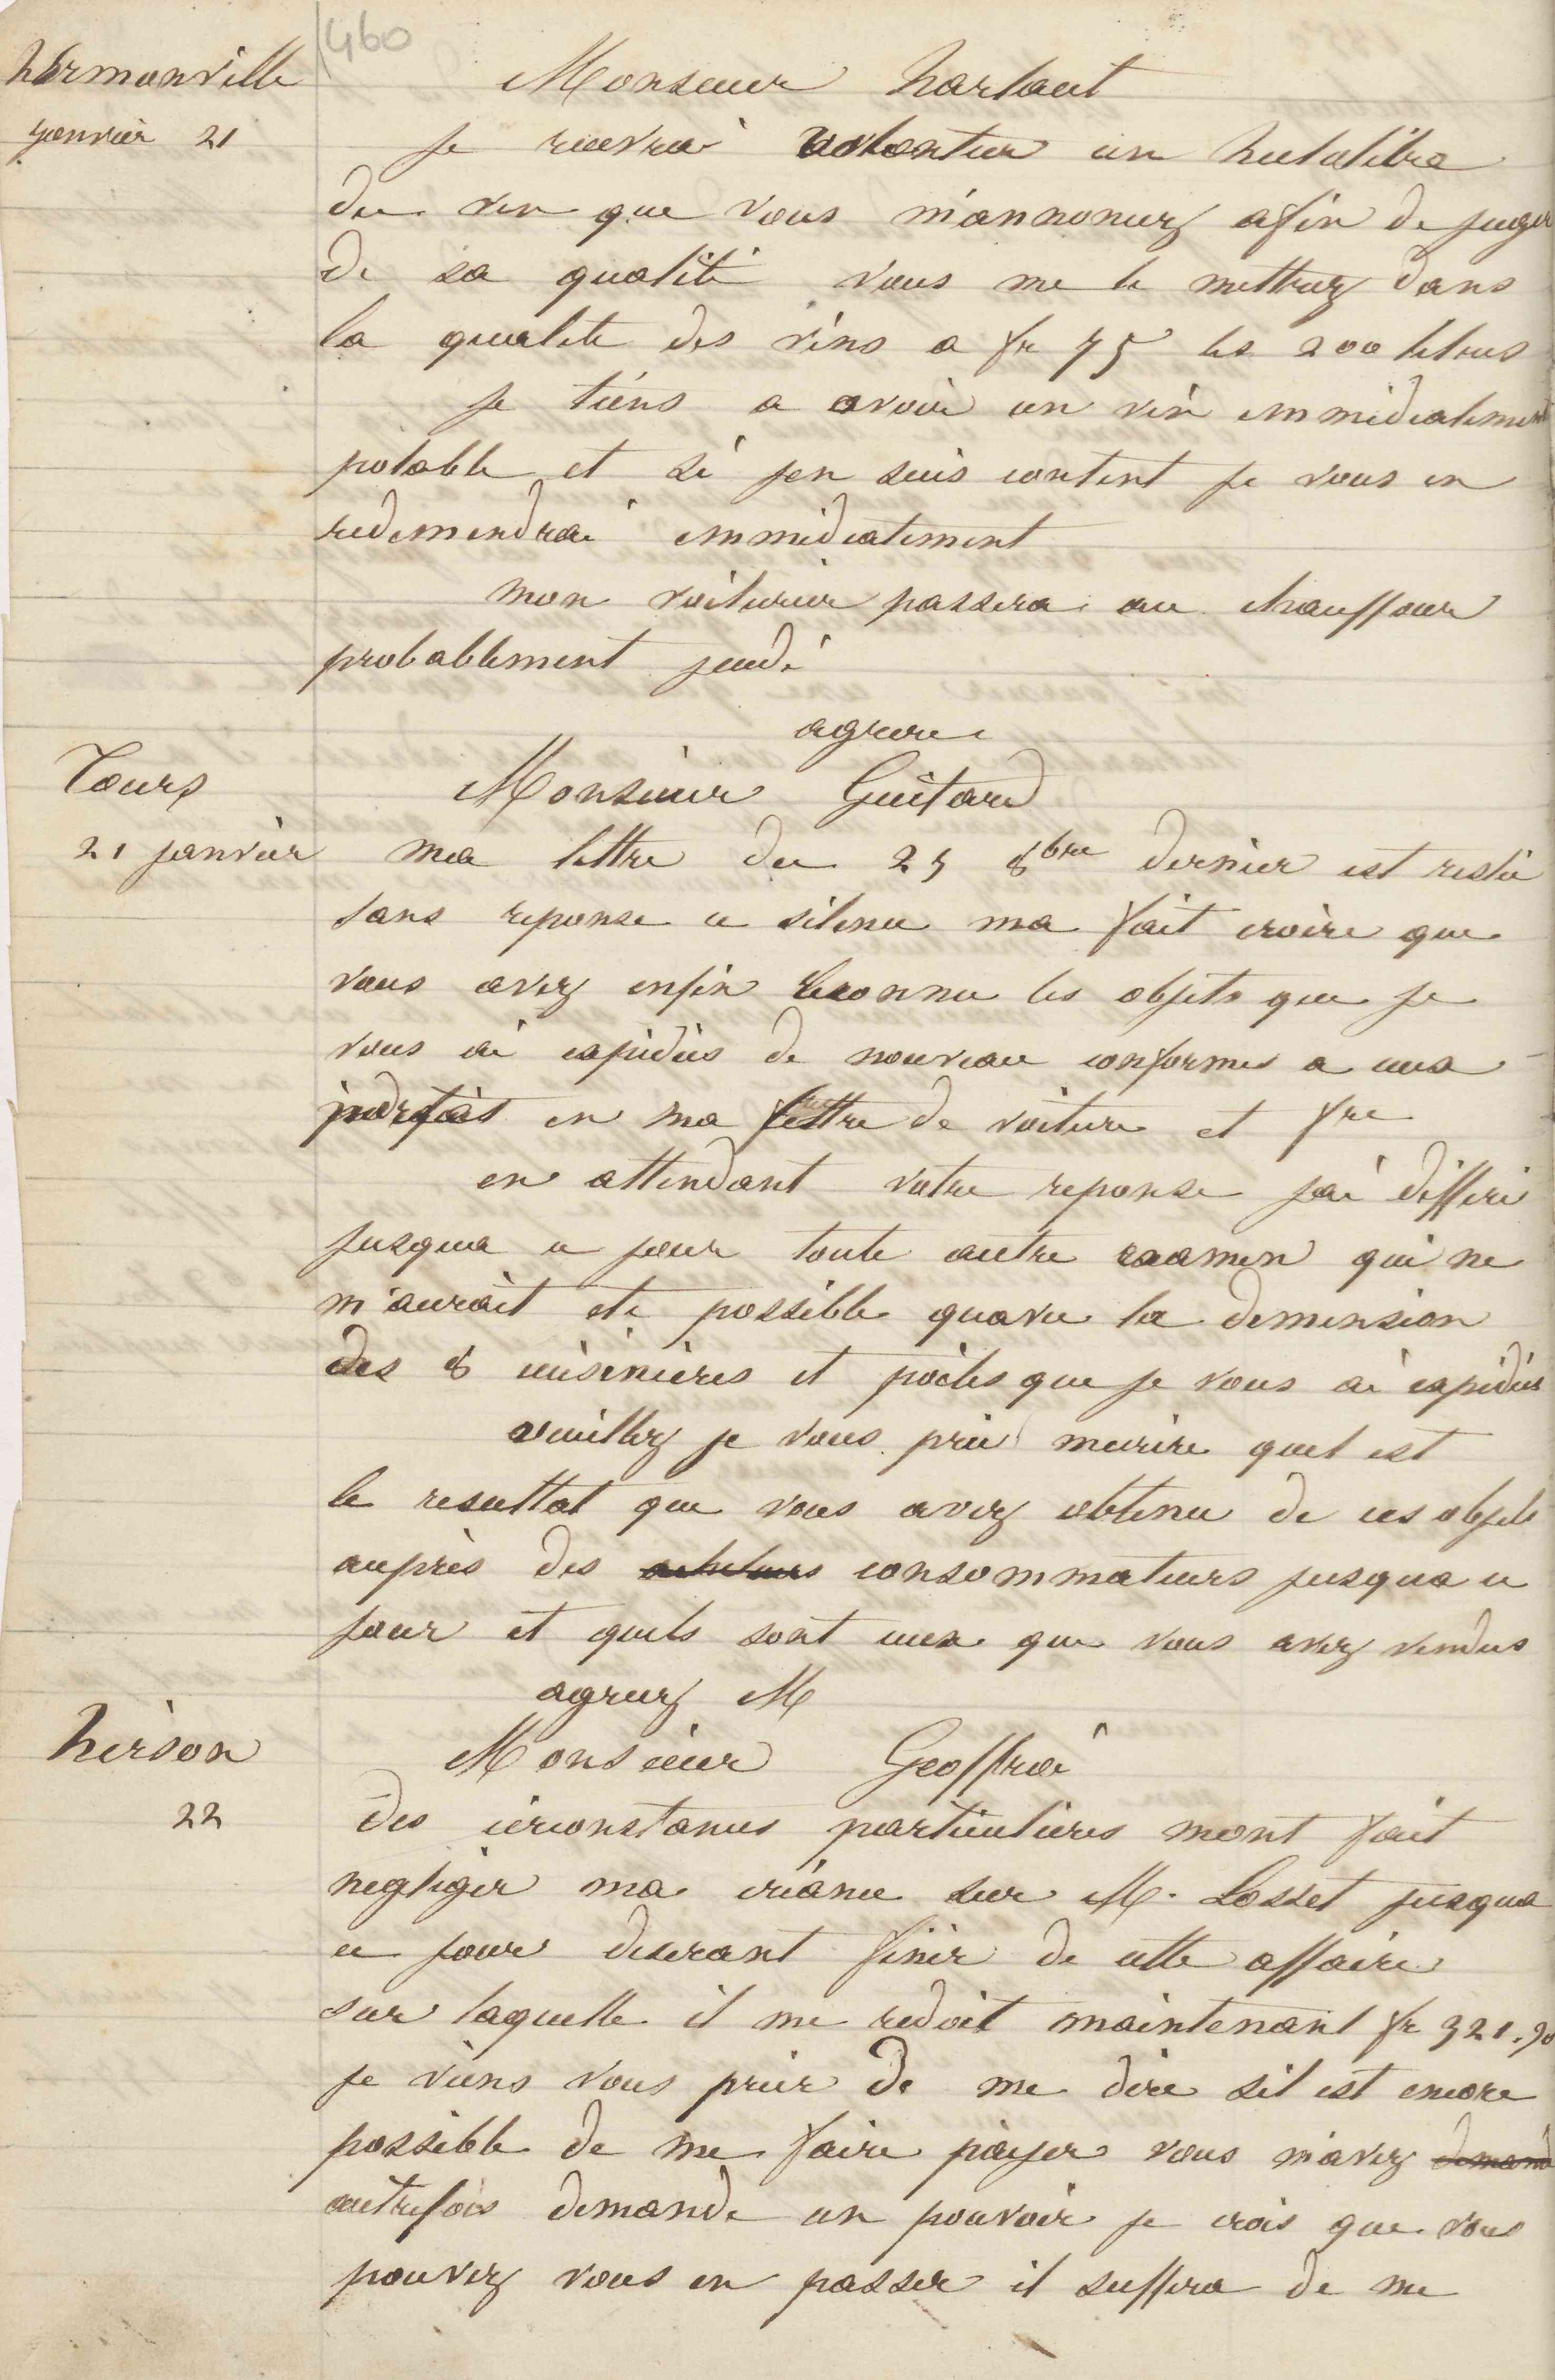 460
hermonville
janvier 21
Monsieur harlaut
je recevrai volontier un hectolitre
du vin que vous m'annoncez afin de juger
de sa qualité vous me le mettrez dans
la qualite des vins a fr 75 les 200 litres
je tiens a avoir un vin emmediatement
potable et si jen suis content je vous en
redemendrai emmediatement
mon voiturier passera au chauffour
probablement jeudi
agreer
Tours
21 janvier
Monsieur Guitard
ma lettre du 25 8bre dernier est restée
sans reponse ce silence ma fait croire que
vous avez enfin reconnu les objets que je
vous ai expédiés de nouveau conformes a ceux
portés en ma lettre de voiture et fre
en attendant votre reponse jai differé
jusqua ce jour toute autre examen qui ne
m'aurait ete possible quavec la demension
des 8 cuisinières et poêles que je vous ai expédiés
veuillez je vous prie mecrire quel est
le resultat que vous avez obtenu de ces objets
auprès des acheteurs consommateurs jusqua ce
jour et quels sont ceux que vous avez vendus
agreez M
hirson
22
Monsieur Geoffroi
Des circonstances particulieres mont fait
negliger ma créance sur M. Losset jusqua
ce jour desirant finir de cette affaire
sur laquelle il me redoit maintenant fr 321.90
je viens vous prier de me dire sil est encore
possible de me faire payer vous m'avez demand
autrefois demandé un pouvoir je crois que vous
pouvez vous en passer il suffira de me